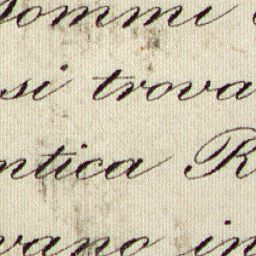 ommi
si trova
ntica R
vano in